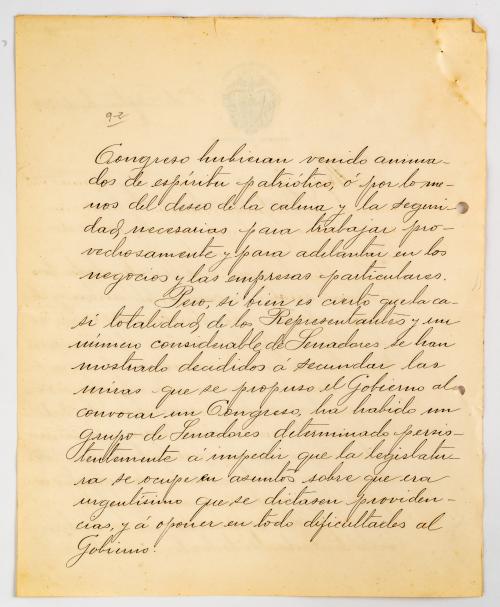 92
Congreso hubieran venido anima-
dos de espíritu patriótico, ó por lo me-
nos del deseo de la calma y la seguri-
dad necesarias para trabajar pro-
vechosamente y para adelantar en los
negocios y las empresas particulares.
Pero, si bien es cierto que la ca-
si totalidad de los Representantes y un
número considerable de Senadores se han
mostrado decididos á secundar las
miras que se propuso el Gobierno al
convocar un Congreso, ha habido un
grupo de Senadores determinado persis-
tentemente á impedir que la legislatu-
ra se ocupe en asuntos sobre que era
urgentísimo que se dictasen providen-
cias, y á oponer en todo dificultades al
Gobierno.